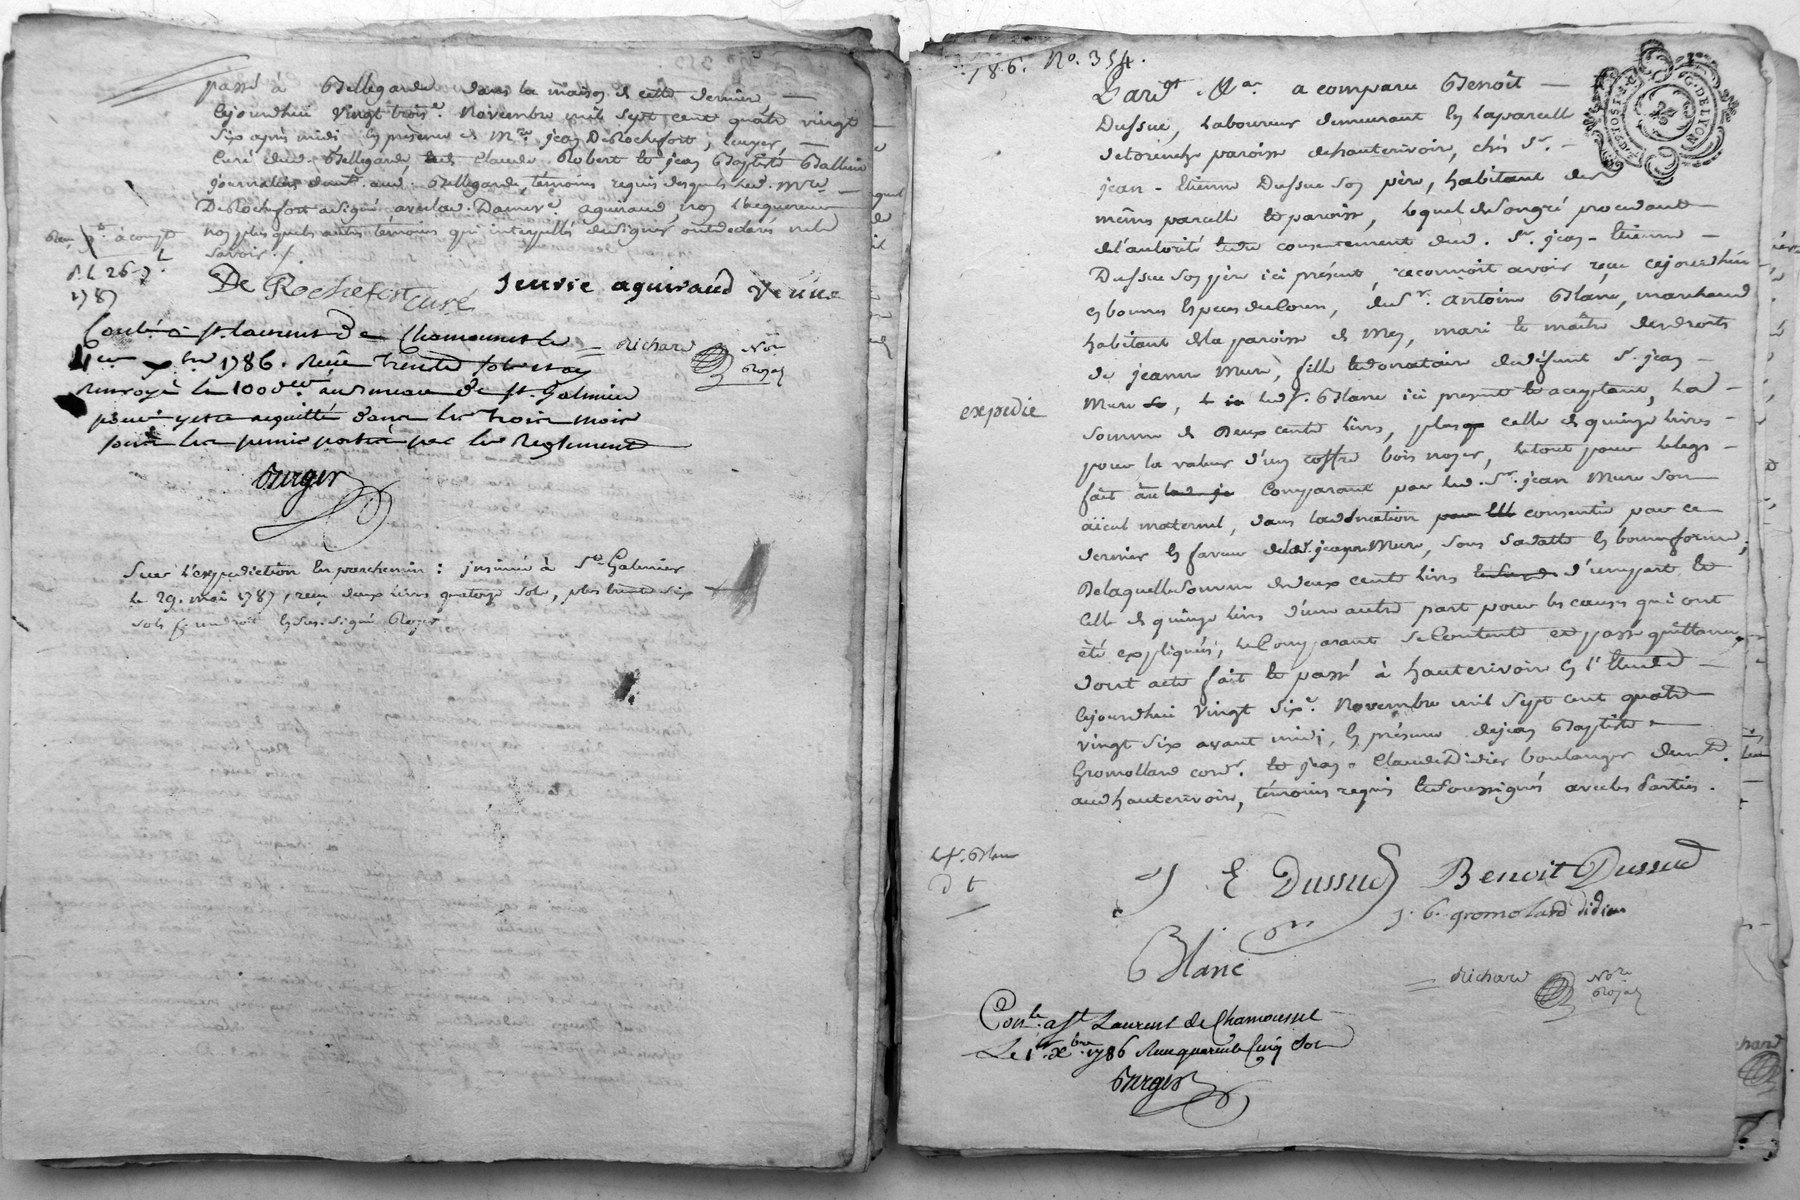 passé à Bellegarde dans la maison de cette derniere,
cejourdhui vingt trois.e Novembre mil sept cent quatre vingt
six après midi en présence de M.re jean DeRochefort, ecuyer,
Curé dud. Bellegarde, de Claude Robert et jean Baptiste
journaliers dem.t aud. Bellegarde, témoins requis desquels led. M.re
DeRochefort a signé avec lad. Dame v.e aguiraud, non l'acquereur
non plus que les autres temoins qui interpellés de signer ont declaré ne le
savoir ./.
à compt
26
1787
De Rochefort curé
aguiraud veuve
= Richard No.re Royal
Conlé à st. Laurent De Chamousset le
1er x.bre 1786. Reçu trente sols
renvoyé le 100.der au bureau De st. Galmier
pour y etre acquitté dans les trois mois
sous les peines portées par les Reglements
Berger
Sur l'expediction en parchemin : insinué à St. Galmier
le 29. mai 1787, reçu deux livres quatorze sols, plus trente six
sols p. un droit
186. No. 354.
G. DE LYON
Pardt. &a. a comparu Benoît
Dussuc, laboureur demeurant en la parcelle
paroisse de hauterivoire, chés S.r
jean - Etienne Dussuc son père, habitant des
mêmes parcelle et paroisse, lequel de son gré procedant
de l'autorité et du consentement dud. S.r jean - Etienne
Dussuc son père ici présent, reconnoit avoir reçu cejourdhui
en bonnes Especes du Cours, du S.r Antoine Blanc, marchand
habitant de la paroisse de Mey, mari et maître des droits
de jeanne Mure, fille et donataire de defunt S.r jean
Mure, led. S.r. Blanc ici present et acceptant, la
expedie
somme de Deux cents livres, plus celle de quinze livres
pour la valeur d'un coffre bois noyer, le tout pour le legs
fait au Comparant par led. S.r jean Mure son
aïeul maternel, dans la donation consentie par ce
dernier en faveur de lad. jeanne Mure, sous sa datte en bonne forme,
De laquelle somme de deux cents livres d'une part et
celle de quinze livres d'une autre part pour les causes qui ont
été expliquées, le Comparant se Contente et passe quittance,
dont acte fait et passé à hauterivoire en l'Etude
cejourdhui vingt six.e Novembre mil sept cent quatre
vingt six avant midi, en présence de jean Baptiste
Gromolland cord.r et jean - Claude Didier boulanger dem.t
aud hauterivoire, témoins requis et soussignés avec les Parties.
le s. Blanc
d t
J E Dussuc Benoit Dussuc
J. b. gromoland didier
Blanc
= Richard No.re Royal
Con.lé. a st Laurent de Chamousset
Le 1er. x.bre 1786 Reçu quarente Cinq Sols
Berger